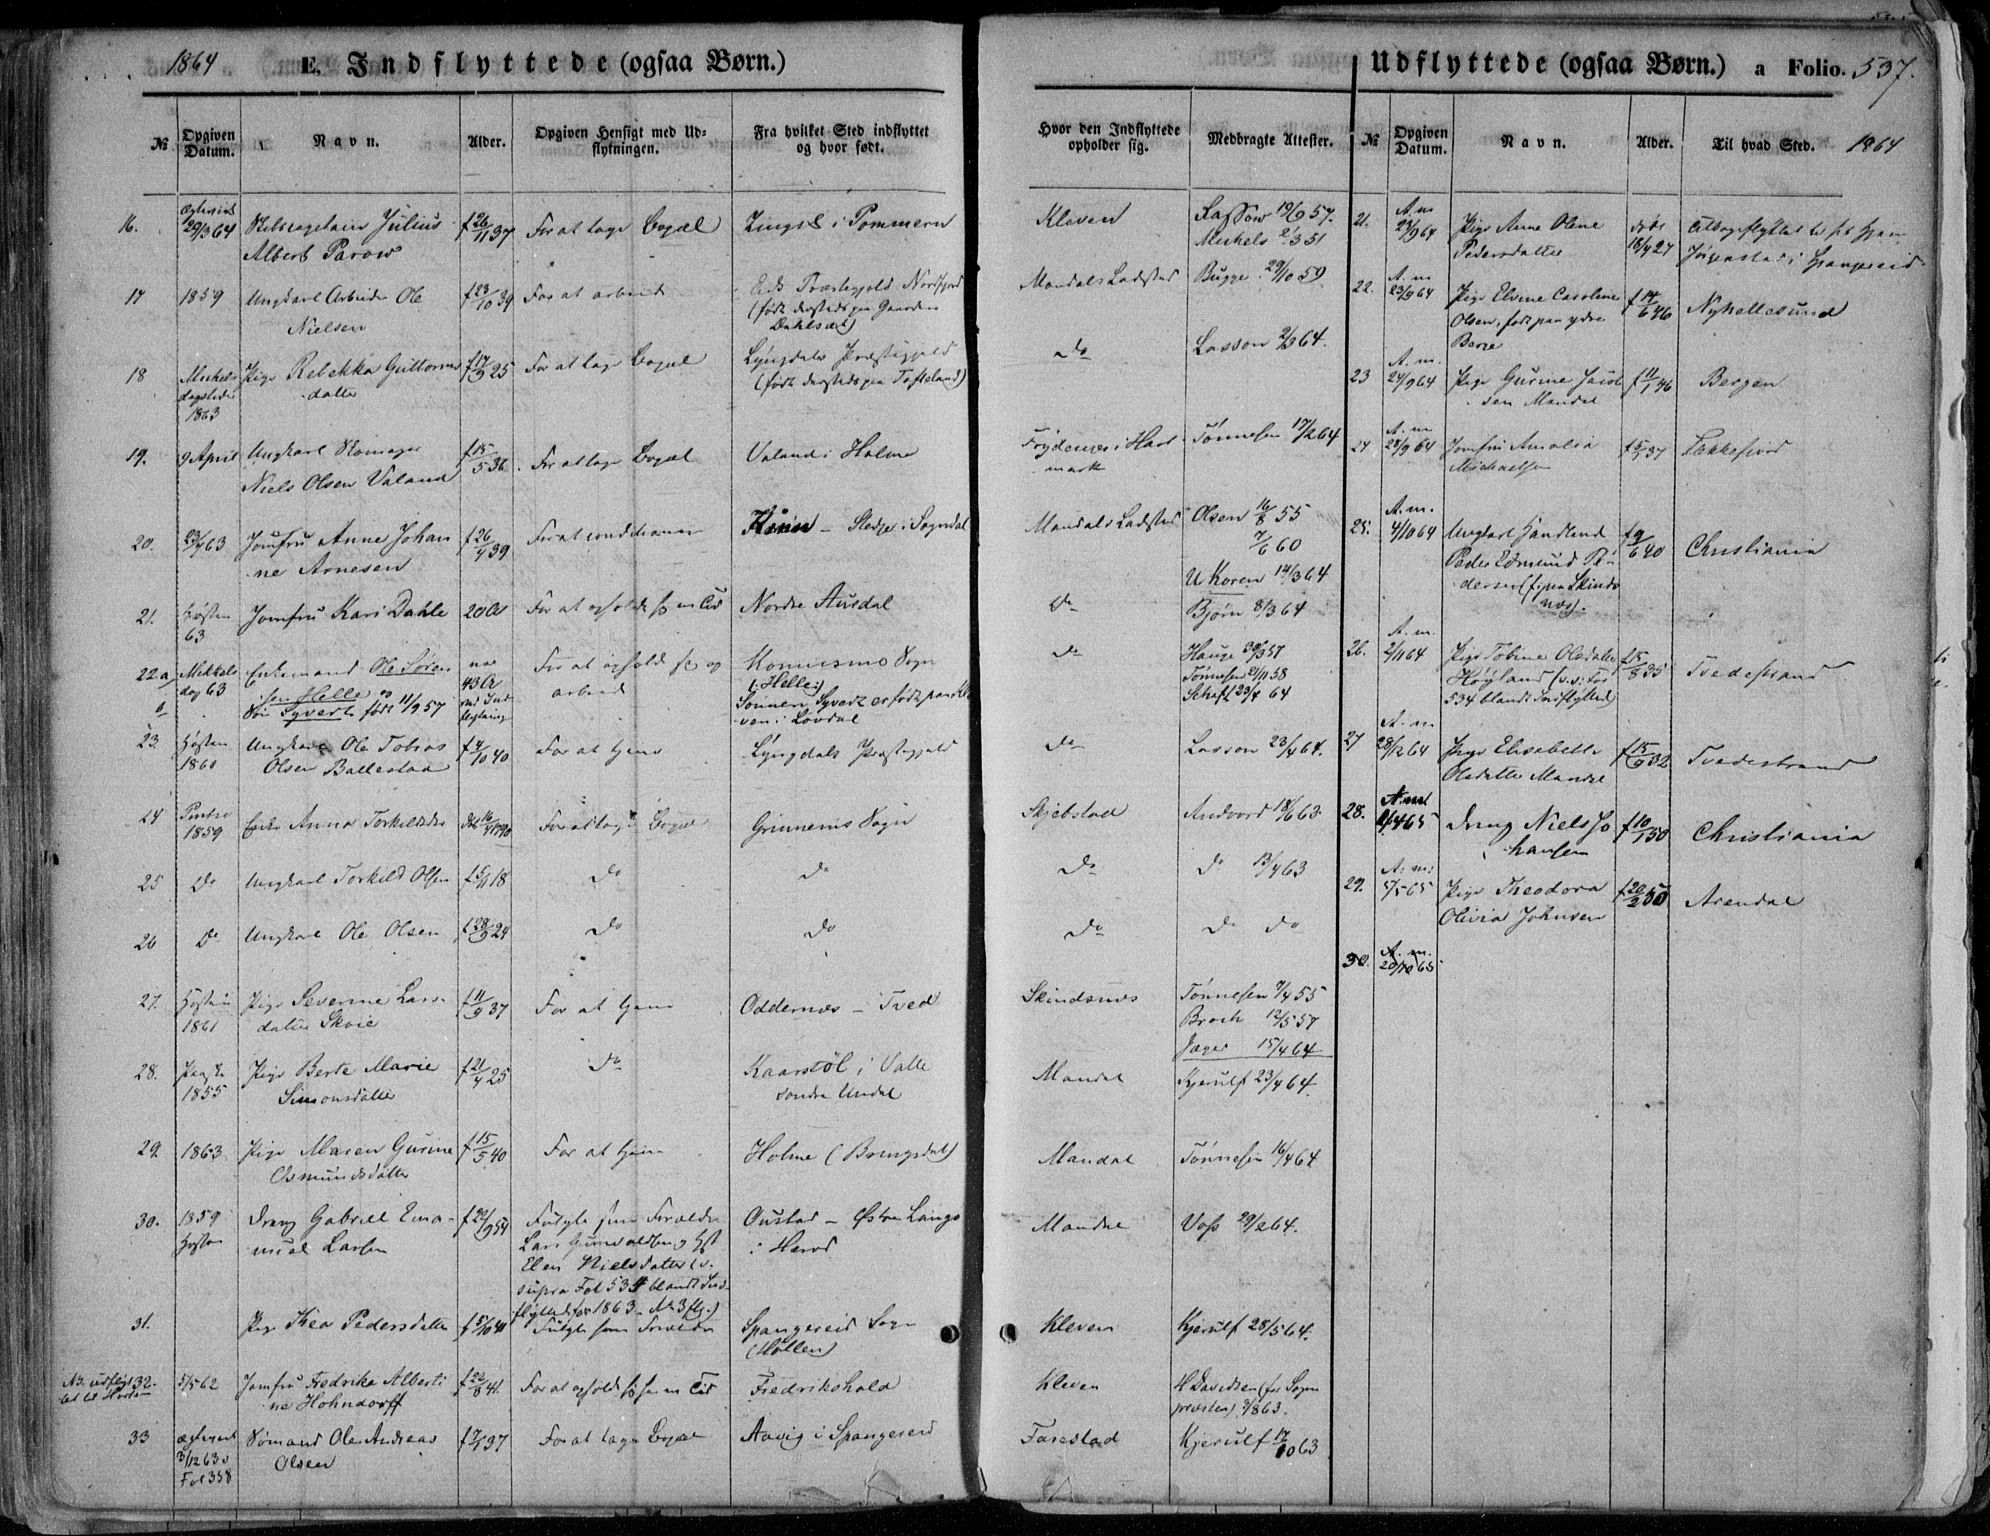 1864 E. Indflyttede (ogsaa Børn.)
Udflyttede (ogsaa Børn.) a Folio. 537.
№ Opgiven Datum. Navn. Alder. Opgiven Hensigt med Udflytningen. Fra hvilket Sted indflyttet og hvor født.
Hvor den Indflyttede opholder sig. Medbragte Attester. № Opgiven Datum. Navn. Alder. Til hvad Sted. 1864
16. 29/3 64 Skibscapitain Julius f 26/11 37 For at tage Bopæl Zingst i Pommern Kleven 19/9 57.
Albert Parow Michels 2/3 51
17 1859 Ungkarl Arbeider Ole f 23/10 39 For at arbeide Eids Præstegjeld Nordfjord Mandals Ladested Bugge 29/10 59
Nielsen (født dersteds paa Gaarden
18 Mickels Pige Rebekka Guttorms f 17/9 25 For at tage Bopæl Lyngdals Præstegjeld Do Lasson 2/3 64.
dagstider datter (født dersteds paa Tofteland)
1863
19. 9 April Ungkarl Skomager f 15/5 36. For at tage Bopæl Valand i Holme Frydenæs i Hal Tønnesen 17/2 64
Niels Olsen Valand mark
20. 23/4 63 Jomfru Anne Johan f 26/4 39 For at conditionere Kinn - Stedje i Sogndal Mandals Ladested Olsen 16/8 55
ne Arnesen 7/6 60
U Koren 14/3 64
21. Høsten Jomfru Kari Dahle 20 A For at opholde sig en Tid Nordre Ausdal Do Bjørn 8/3 64
63
22 a Mikkels Enkemand Ole Søren 43 A For at opholde sig og Konnesmo Sogn Do Hauge 30/3 57
dag 63 sen Helle og arbeide (Helle) Tønnesen 21/11 58
b Søn Syvert født 11/9 57 Sønnen Syvert er født paa Kle Schift 23/4 64
ven i Løvdal
23. Høsten Ungkarl Ole Tobias f 4/10 40 For at tjene Lyngdals Præstegjeld Do Lasson 23/4 64.
1860 Olsen Ballestad
24 Pintse Enke Anna Torkildsdtr 16/4 1790 For at tage Bopæl Grinnems Sogn Skjebstad Andvord 18/6 63.
1859
25 Do Ungkarl Torkild Olsen f 5/11 18 Do Do Do Do 13/4 63
26 Do Ungkarl Ole Olsen f 28/9 24 Do Do Do Do Do
27. Høsten Pige Severine Lars- f 11/9 37 For at tjene Oddernæs - i Tved Skindsnæs Tønnesen 9/4 55
1861 datter Skoie Broch 12/5 57
Jager 15/4 64
28. Paaske Pige Berte Marie f 21/4 25 Do Kaarstøl i Valle Mandal Kjerulf 23/4 64.
1855 Simonsdatter søndre Undal
29. 1863 Pige Maren Gurine f 15/5 40 For at tjene Holme (Bringsdal) Mandal Tønnesen 16/4 64
Osmundsdatter
30. 1859 Dreng Gabriel Ema- f 20/9 54 Fulgte sine Forældre Oustad - Østre Lange Mandal Voss 29/2 64.
Høsten nuel Larsen Lars Gunvaldsen og Hst i Herad
Elen Nielsdatter (v.
supra Fol 534 blandt Ind
flyttede for 1863 - No 3 flg.)
31. Pige Thea Pedersdatter f 5/10 41 Fulgte sine Forældre Spangereid Sogn Kleven Kjerulf 28/5 64.
(Høllen)
NB. udflyt 32. 5/5 62 Jomfru Fredrike Alberti f 22/8 41. For at opholde sig her en Tid Fredrikshald Kleven H Davidsen (for Sogne
tet til Horten ne Hohndorff præsten) 3/8 63.
33 Ægteviet Sømand Ole Andreas f 7/1 37 For at tage Bopæl Aavig i Spangereid Farestad Kjerulf 17/10 63
3/12 63 v Olsen
Fol 358
21. A.m. Pige Anne Olene født
23/9 64 Pedersdatter 18/4 27 Jørgenstad i Spangereid
22. A.m. Pige Elvine Caroline f 14/6 46 Ny hellesund
23/9 64 Olsen, født paa ydre
Berge
23 A.m. Pige Gurine Jacob f 11/1 46 Bergen
24/9 64 sen Mandal
24 A.m. Jomfru Amalia f 5/1 37 Flekkefjord
28/9 64 Michaelsen
25. A.m. Ungkarl Handlende f 9/6 40 Christiania
4/10 64 Peder Edmund Pe-
dersen (fra Skinds
næs).
26. A.m. Pige Tobine Olsdatter f 15/8 35 Tvedestrand
2/11 64 Høyland (v. s. Fol
534 blandt Indflyttede)
27 A.m. Pige Elisabeth f 15/9 32 Tvedestrand
28/12 64 Olsdatter Mandal
28. A.m. Dreng Niels Jo f 10/1 50 Christiania
4 65 hansen
29. A.m. Pige Theodora f 20/2 50 Arendal
5/5 65 Olivia Johnsen
30. A.m.
20/10 65